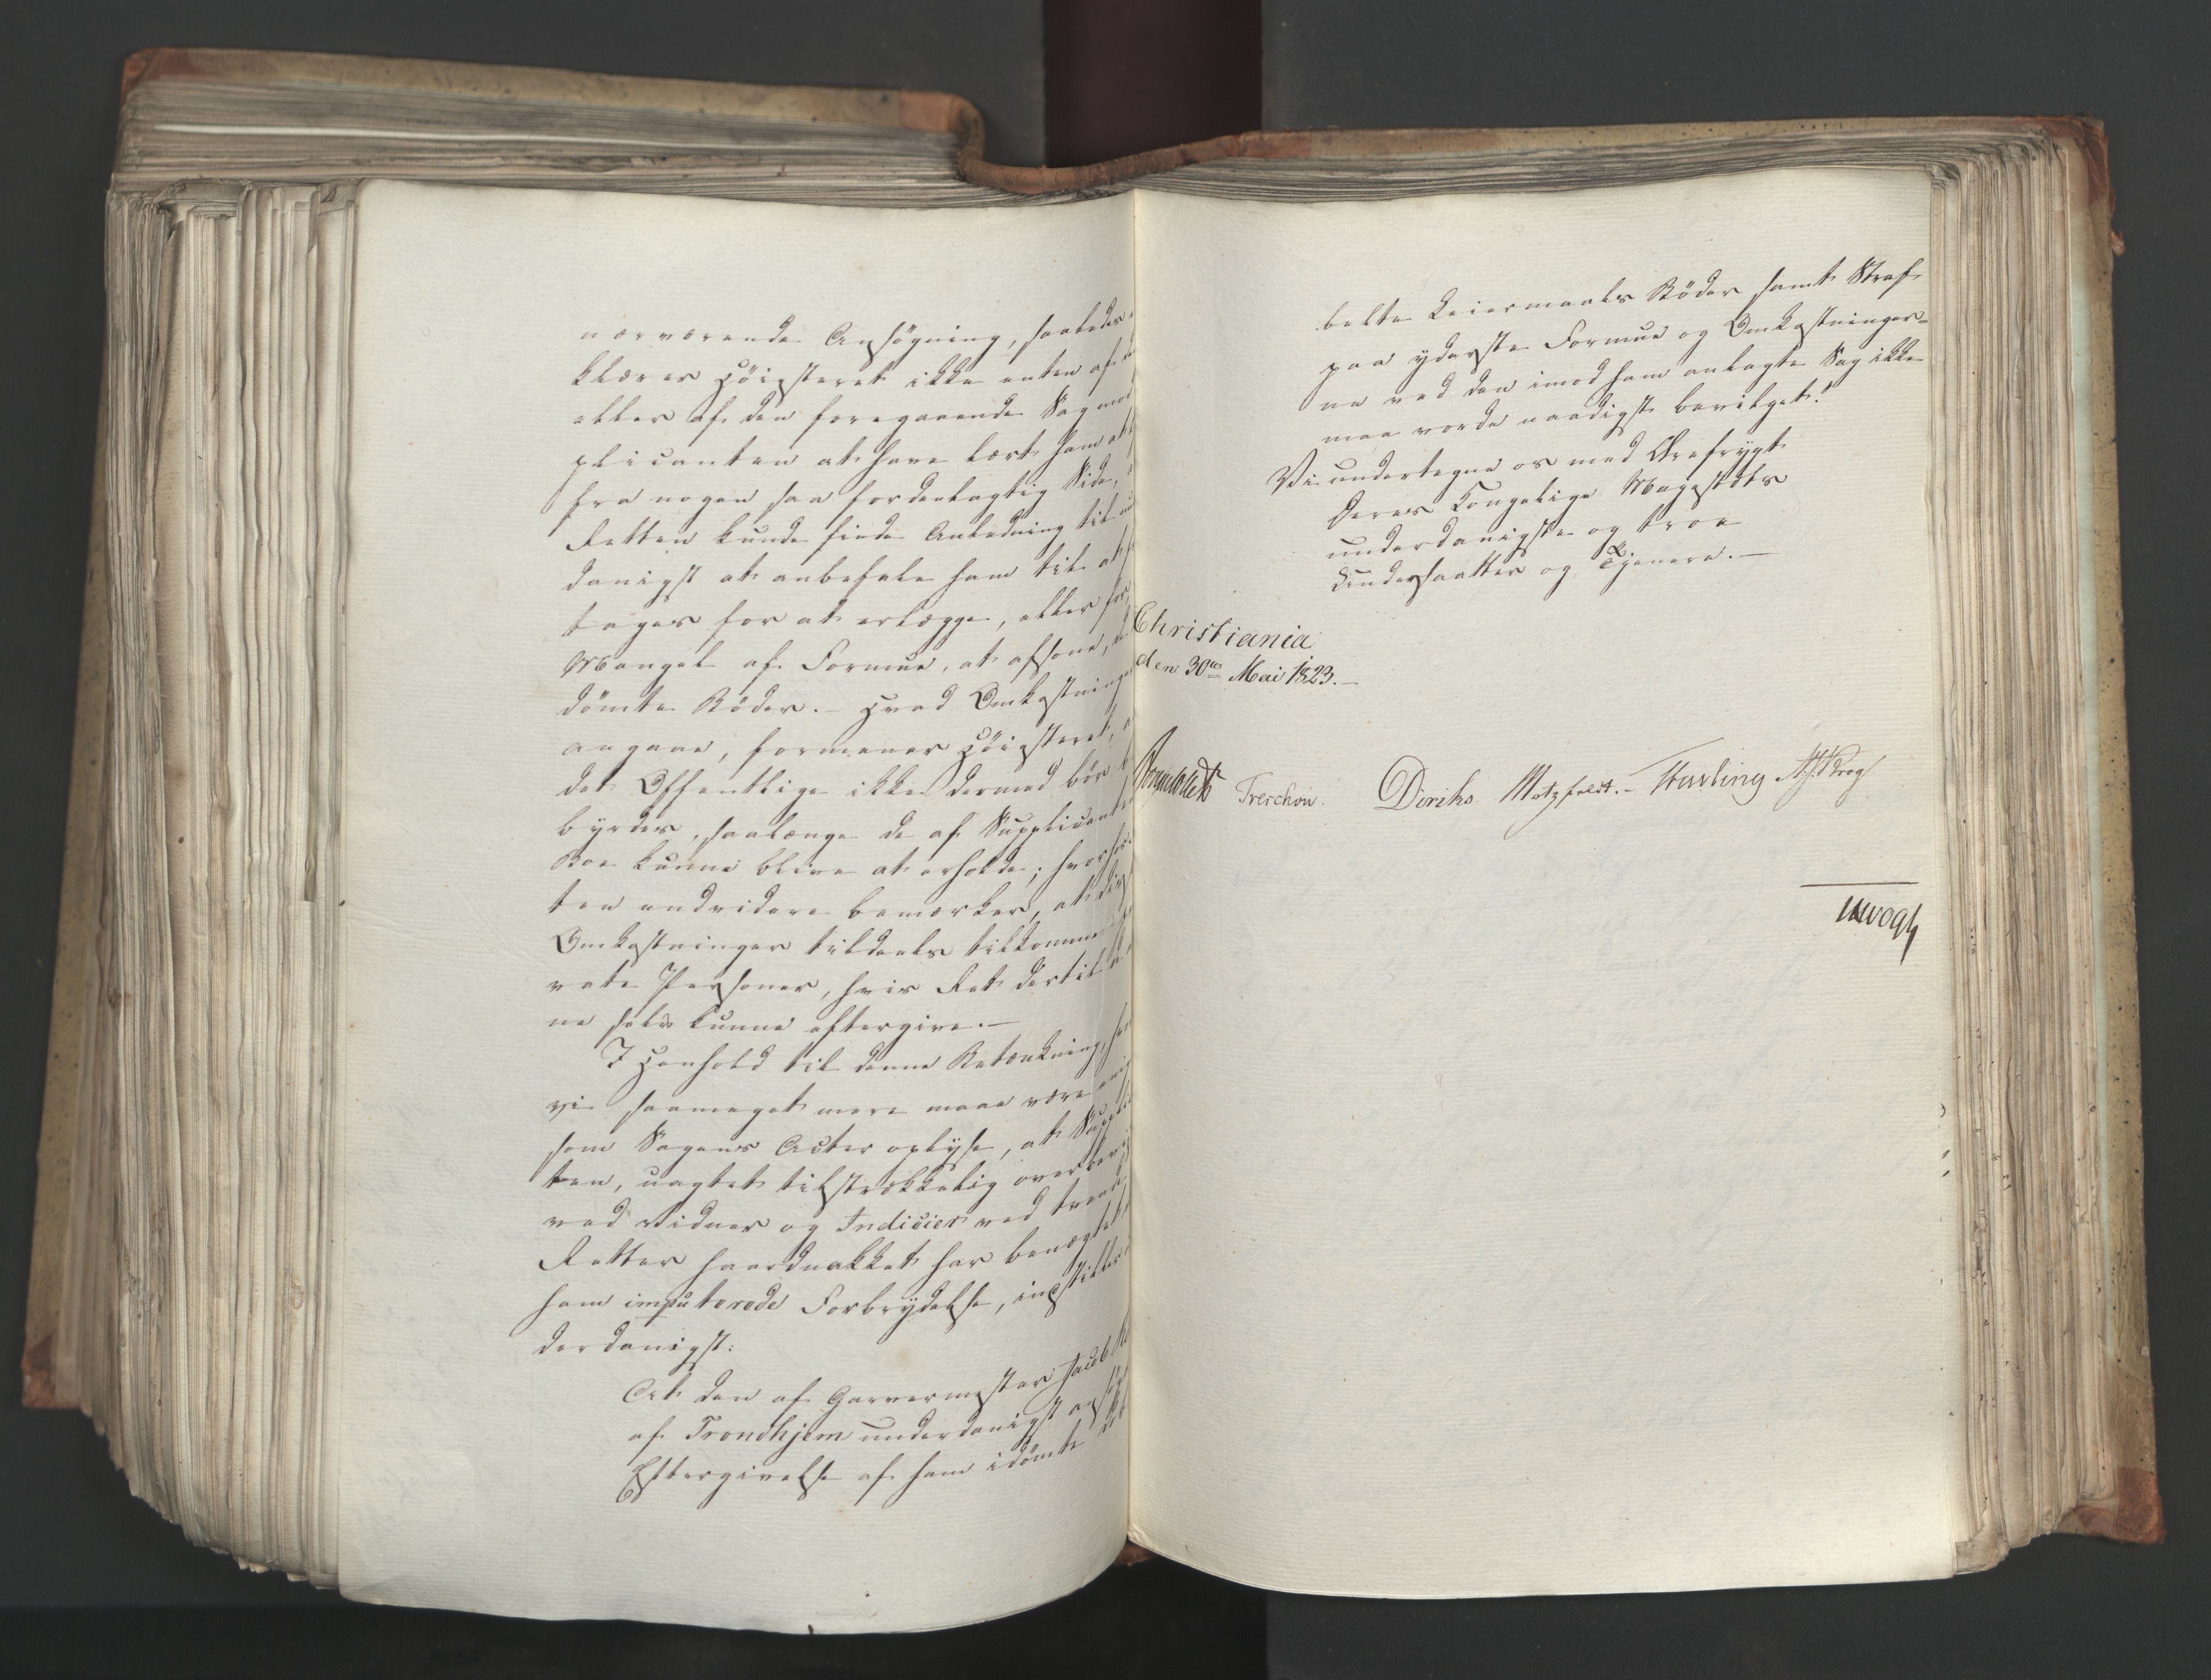 nærværende Ansøgning, saaledes
klærer Höiesteret ikke enten af de
eller af den foregaaende Sag mod
plicanten at have lært ham at
fra nogen saa fordeelagtig Side,
Retten kunde finde Anledning til un
danigst at anbefale ham til at
tages for at erlægge, eller for
Mangel af Formue, at afsone, de
dömte Böder. - Hvad Omkostninge
angaae, formener Höiesteret, a
det Offentlige ikke dermed bör b
byrdes, saalænge de af Supplicante
Boe kunne blive at erholde; hvorfor
ten endvidere bemærker, at diss
Omkostninger tildeels tilkomme
vate Personer, hvis Ret dertil
ne selv kunne eftergive. -
I Henhold til denne Betænkning, hvo
vi saameget mere maae være enig
som Sagens Acter oplyse, at Suppli
ten, uagtet tilstrækkelig overbevi
ved Vidner og Indicier ved trende
Retter haardnakket har benægtet
ham imputerede Forbrydelse, instilles
derdanigst:
At den af Garvermester Jacob
af Trondhjem underdanigst ansø
Eftergivelse af ham idömte dob
belte Leiermaals Böder samt Straf
paa yderste Formue og Omkostninger-
ne ved den imod ham anlagte Sag ikke
maa vorde naadigst bevilget.
Vi undertegne os med Ærefrygt
Deres Kongelige Majestæts
underdanigste og troe
Undersaatter og Tjenere. -
Christiania
den 30te Mai 1823. -
Sommerhielm Treschow. Diriks Motzfeldt. - Fasting Krog
Vogt